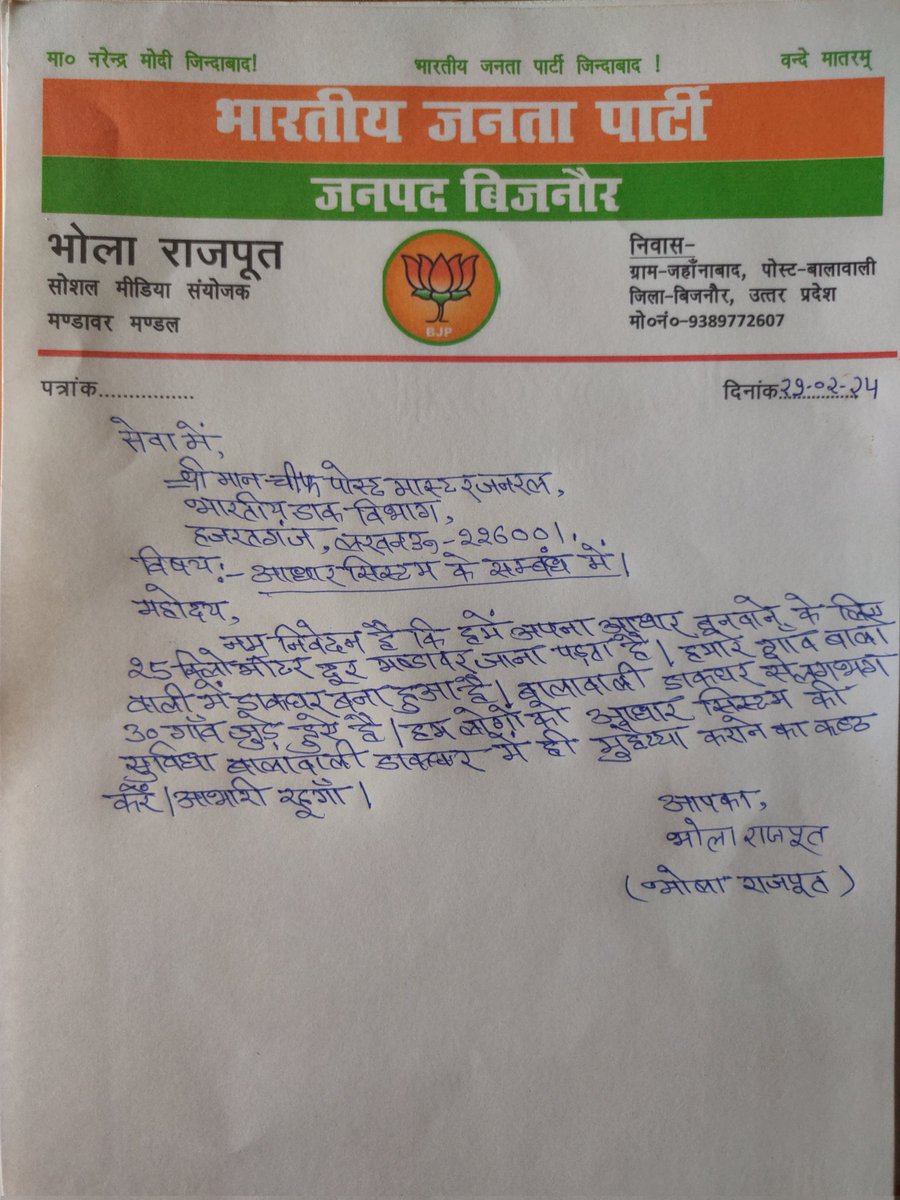 मा० नरेन्द्र मोदी जिन्दाबाद! भारतीय जनता पार्टी जिन्दाबाद ! वन्दे मातरम्
भारतीय जनता पार्टी
जनपद बिजनौर
भोला राजपूत
सोशल मीडिया संयोजक
मण्डावर मण्डल
BJP
निवास-
ग्राम-जहाँनाबाद, पोस्ट-बालावाली
जिला-बिजनौर, उत्तर प्रदेश
मो०नं०-9389772607
पत्रांक................ दिनांक २९-०२-२४
सेवा में,
श्री मान चीफ पोस्ट मास्टर जनरल,
भारतीय डाक विभाग,
हजरतगंज, लखनऊ-२२6००1.
विषय:- आधार सिस्टम के सम्बंध में।
महोदय,
नम्र निवेदन है कि हमें अपना आधार बनवाने के लिए
२5 किलो मीटर दूर मण्डावर जाना पड़ता है। हमारे गाव बाला
वाली में डाकघर बना हुआ है। बालावाली डाकघर से लगभग
3० गाँव जुड़े हुये है। हम लोगों को आधार सिस्टम की
सुविधा बालावाली डाकघर में ही मुहैय्या कराने का कष्ठ
करें। आभारी रहूगाँ।
आपका,
भोला राजपूत
(भोला राजपूत)